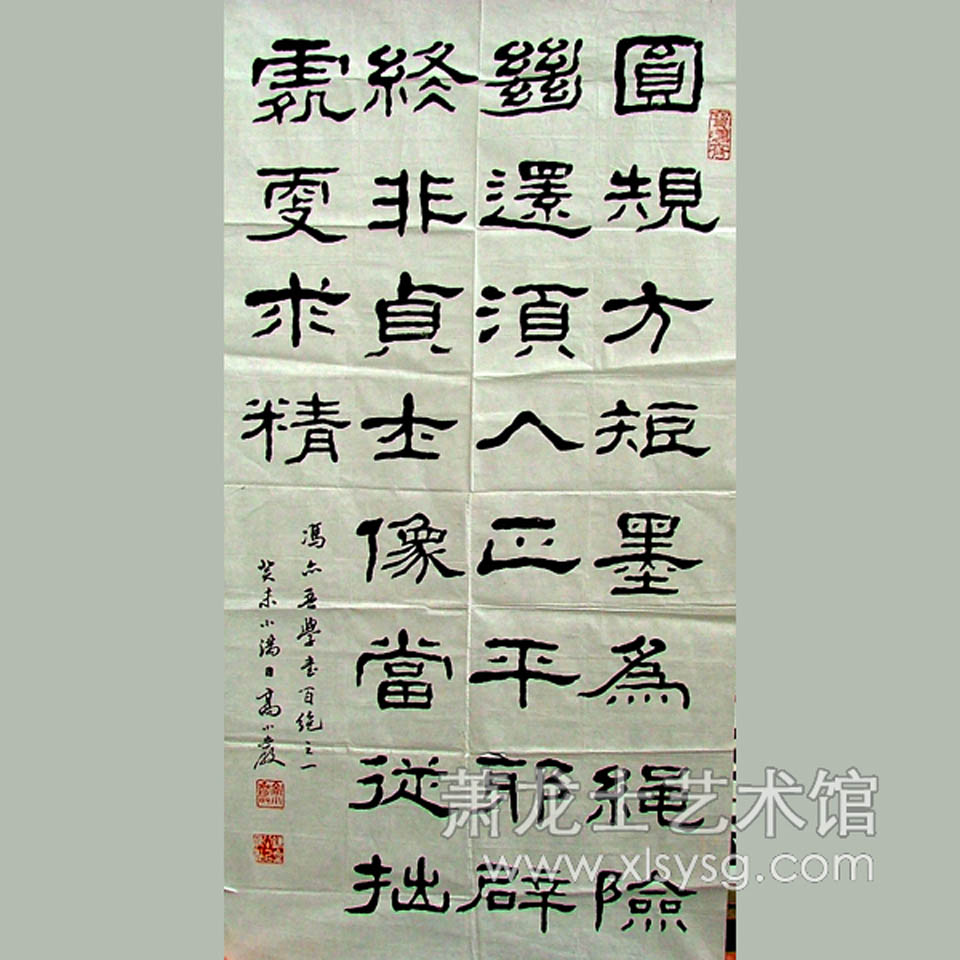 圓規方矩墨為繩險
𢇍還須人正平邪辟
終非貞士像當從拙
處更求精
馮亦吾學書百絕之一
癸未小滿日高小
萧龙士艺术馆
www.xlsysg.com